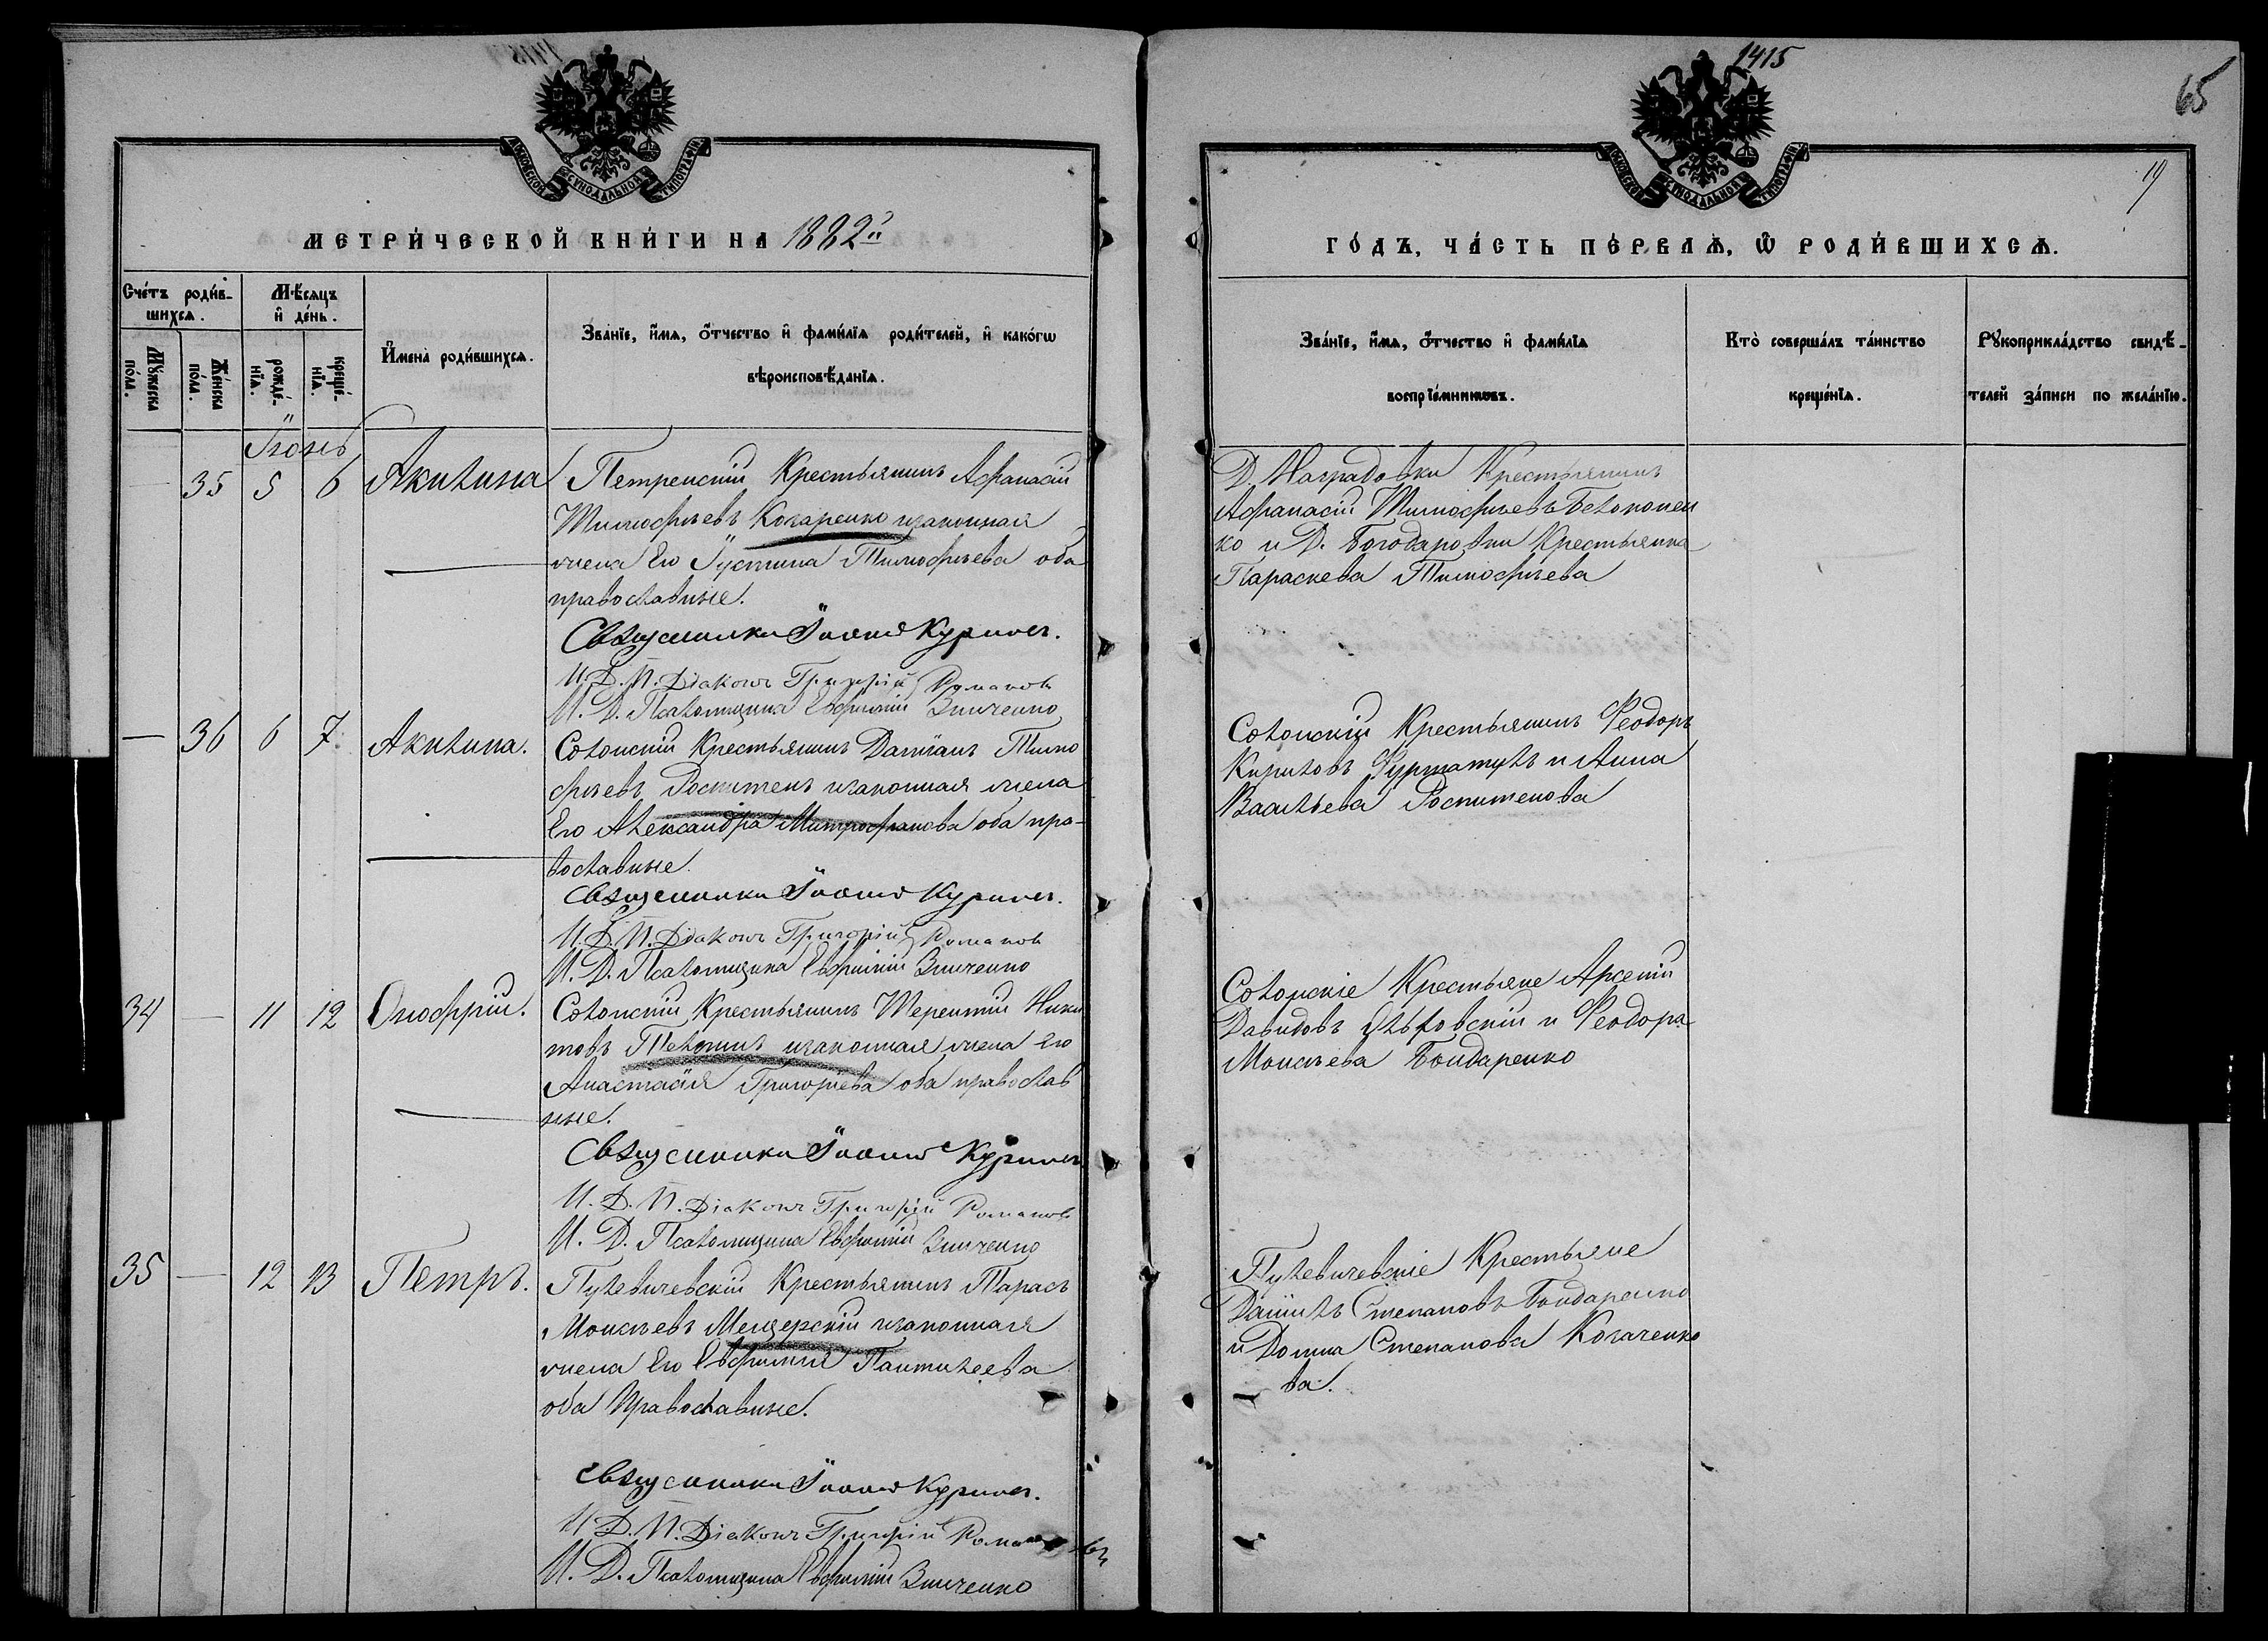 1415
65
19
МОСКОВСКОЙ СѴНОДАЛЬНОЙ ТИПОГРАФІИ
МЕТРИ́ЧЕСКОЙ КНИ́ГИ НА 1882й
Сче́тъ роди́в-
шихсѧ.
Мѣ́сѧцъ
и҆ де́нь.
Мꙋ́жеска
по́ла.
Же́нска
по́ла.
рожде́-
нїѧ.
креще́-
нїѧ.
И҆мена̀ роди́вшихсѧ.
Зва́нїе, и҆́мѧ, ѻ҆́тчество и҆ фами́лїѧ роди́телей, и҆ како́гѡ
вѣроисповѣ́данїѧ.
Іюнь
35 5 6 Акилина
Петренскій Крестьянинъ Афанасій
Тимофѣевъ Когаренко изаконная
жена Его Іустина Тимофѣева оба
православные.
Священникъ Іоаннъ Куринъ.
И. Д. П. Діаконъ Григорій Романовъ
И. Д. Псаломщика Евфимій Зинченко
— 36 6 7 Акилина.
Солонскій Крестьянинъ Даміанъ Тимо
фѣевъ Роспитенъ изаконная жена
Его Александра Митрофанова оба пра-
вославные.
Священникъ Іоаннъ Куринъ.
И. Д. П. Діаконъ Григорій Романовъ
И. Д. Псаломщика Евфимій Зинченко
34 — 11 12 Онофрій.
Солонскій Крестьянинъ Терентій Ники
товъ изаконная жена Его
Анастасія Григоріева оба православ
ные.
Священникъ Іоаннъ Куринъ
И. Д. П. Діаконъ Григорій Романовъ
И. Д. Псаломщика Евфимій Зинченко
35 — 12 13 Петръ.
Пулевичевскій Крестьянинъ Тарасъ
Моисѣевъ Мещерскій изаконная
жена Его Евфимія Пантилеева
оба Православные.
Священникъ Іоаннъ Куринъ.
И. Д. П. Діаконъ Григорій Романовъ
И. Д. Псаломщика Евфимій Зинченко
МОСКОВСКОЙ СѴНОДАЛЬНОЙ ТИПОГРАФІИ
ГО́ДЪ, ЧА́СТЬ ПЕ́РВАѦ, Ѡ҆ РОДИ́ВШИХСѦ.
Зва́нїе, и҆́мѧ, ѻ҆́тчество и҆ фами́лїѧ
воспрїе́мникѡвъ.
Кто̀ соверша́лъ та́инство
креще́нїѧ.
Рꙋкоприкла́дство свидѣ́-
телей за́писи по жела́нїю.
Д. Наградовки Крестьянинъ
Афанасій Тимофѣевъ Белоконен
ко и Д. Богодаровки Крестьянка
Параскева Тимофѣева
Солонскій Крестьянинъ Феодоръ
Кириловъ и Анна
Васильева Роспитенова
Солонскіе Крестьяне Арсеній
Давидовъ и Феодора
Моисѣева Бондаренко
Пулевичевскіе Крестьяне
Даніилъ Степановъ Бондаренко
и Домна Степанова Когаченко
ва.